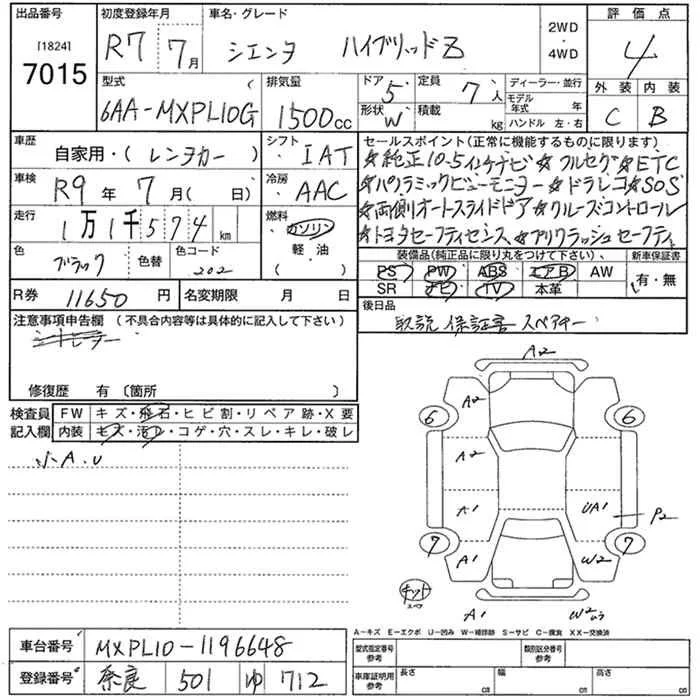 出品番号 初度登録年月 車名・グレード 評価点
[1824] 7015 R7 7月 シエンタ ハイブリッドZ 2WD・4WD 4
型式 排気量 ドア 5 定員 7人 ディーラー・並行 外装 内装
6AA-MXPL10G 1500cc 形状 W 積載 kg モデル年式 年 ハンドル 左・右 C B
車歴 自家用・(レンタカー) シフト IAT セールスポイント(正常に機能するものに限ります)
☆純正10.5インチナビ☆フルセグ☆ETC
車検 R9年 7月( 日) 冷房 AAC ☆パノラミックビューモニター☆ドラレコ☆SOS
走行 1万1千574km 燃料 ガソリン・軽・油 ☆両側オートスライドドア☆クルーズコントロール
☆トヨタセーフティセンス☆プリクラッシュセーフティ
色 ブラック 色替 色コード 202 装備品(純正品に限り丸をつけて下さい) 新車保証書
PS PW ABS エアB AW 有・無
R券 11650円 名変期限 月 日 SR ナビ TV 本革
注意事項申告欄 (不具合内容等は具体的に記入して下さい) 後日品
取説 保証書 スペアキー
修復歴 有 〔箇所 〕
検査員 FW キズ・飛石・ヒビ割・リペア跡・X要
記入欄 内装 キズ・汚レ・コゲ・穴・スレ・キレ・破レ
小A.U
A2
A2
6 6
A2
A1 UA1 P2
7 A1 W2 7
キット スペア
A1 W2
A-キズ E-エクボ U-凹み W-補修跡 S-サビ C-腐食 XX-交換済
車台番号 MXPL10-1196648 型式指定番号 参考 類別区分番号 参考
登録番号 奈良 501 ゆ 712 車庫証明用 参考 長さ cm 幅 cm 高さ cm